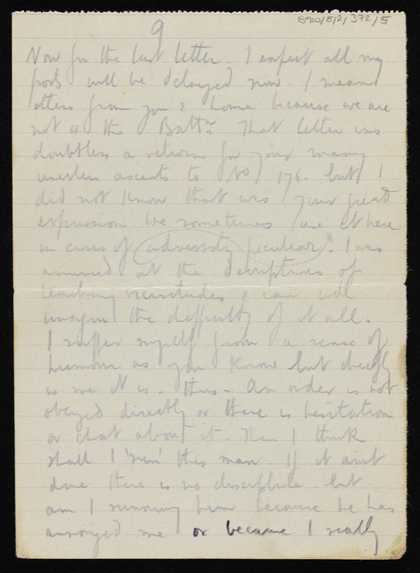 9
Now for the last letter. I expect all my
posts will be delayed now. I mean
letters from you & home because we are
not with the Battn. That letter was
doubtless a return for your many
ascents to No 176. but I
did not know that was your great
expression we sometimes use it here
in cases of "adversity peculiar". I was
amused at the descriptions of
vicissitudes I can well
imagine the difficulty of it all.
I suffer myself from a sense of
humour as you know but chiefly
as me it is. thus - An order is not
obeyed directly or there is hesitation
or chat about it. Then I think
shall I 'run' this man. If it aint
done there is no discipline but
am I running him because he has
annoyed me or because I really